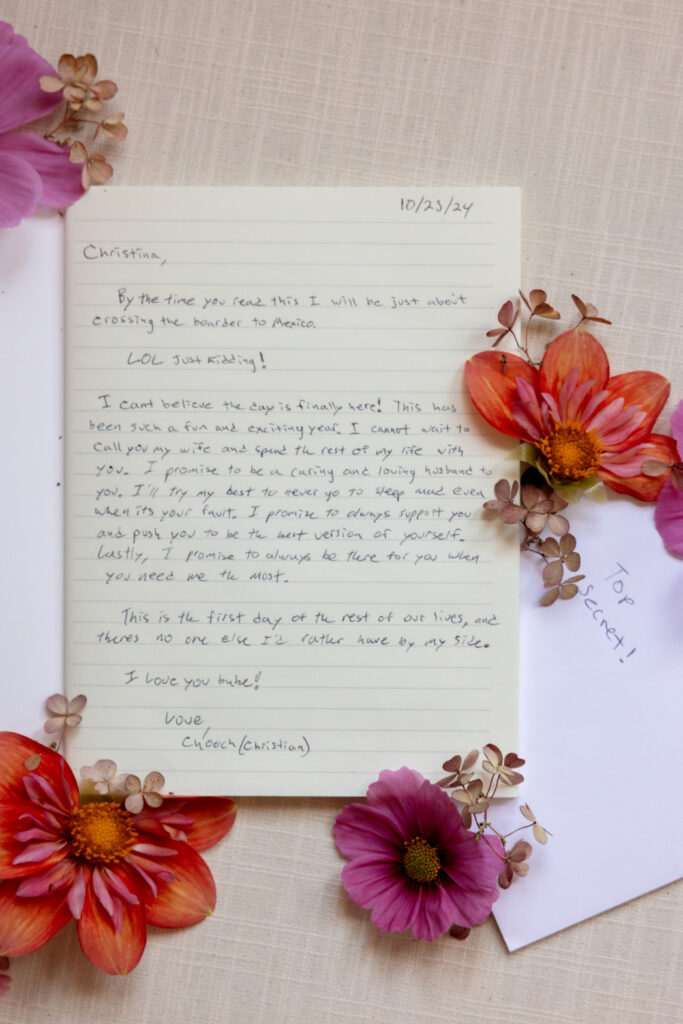 10/25/24
Christina,
By the time you read this I will be just about
crossing the boarder to Mexico.
LOL Just kidding!
I cant believe the day is finally here! This has
been such a fun and exciting year. I cannot wait to
call you my wife and spend the rest of my life with
you. I promise to be a caring and loving husband to
you. I'll try my best to never go to sleep mad even
when its your fault. I promise to always support you
and push you to be the best version of yourself.
Lastly, I promise to always be there for you when
you need me the most.
This is the first day of the rest of our lives, and
theres no one else I'd rather have by my side.
I love you babe!
Love,
Chooch (Christian)
Top
secret!